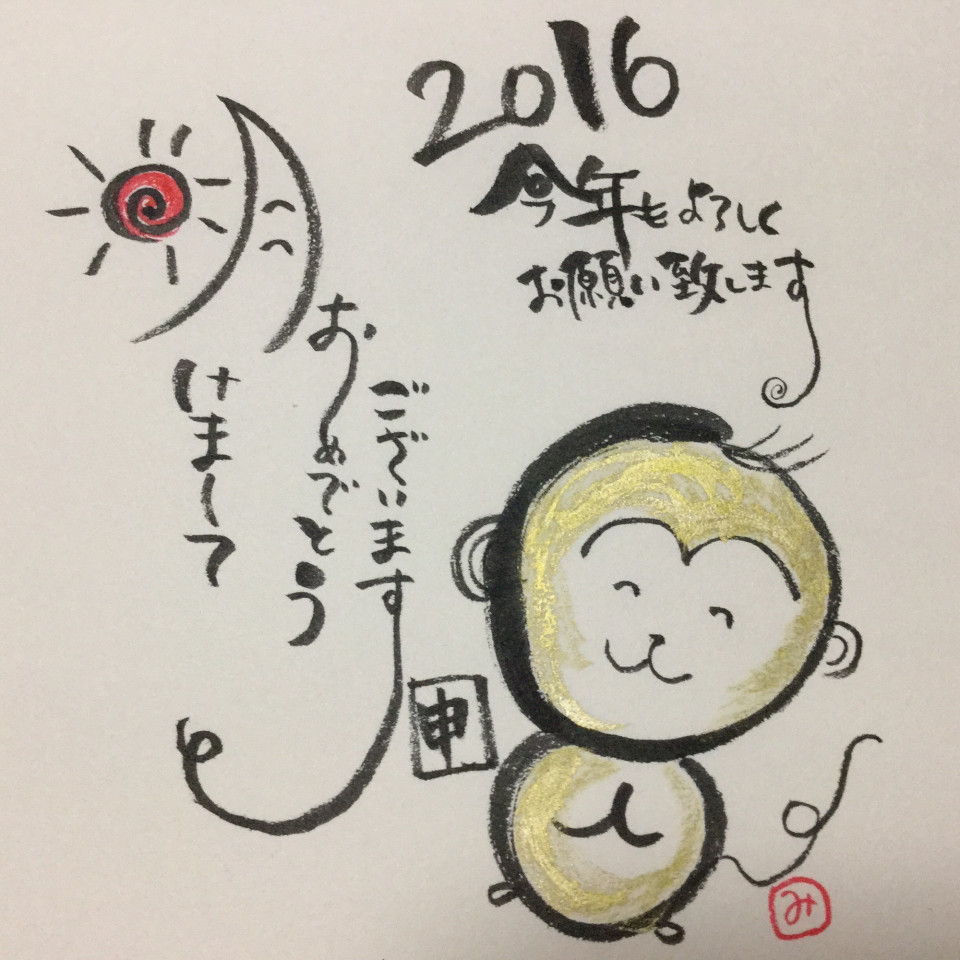 2016
今年もよろしく
お願い致します
明
けまして
おめでとう
ございます
申
み